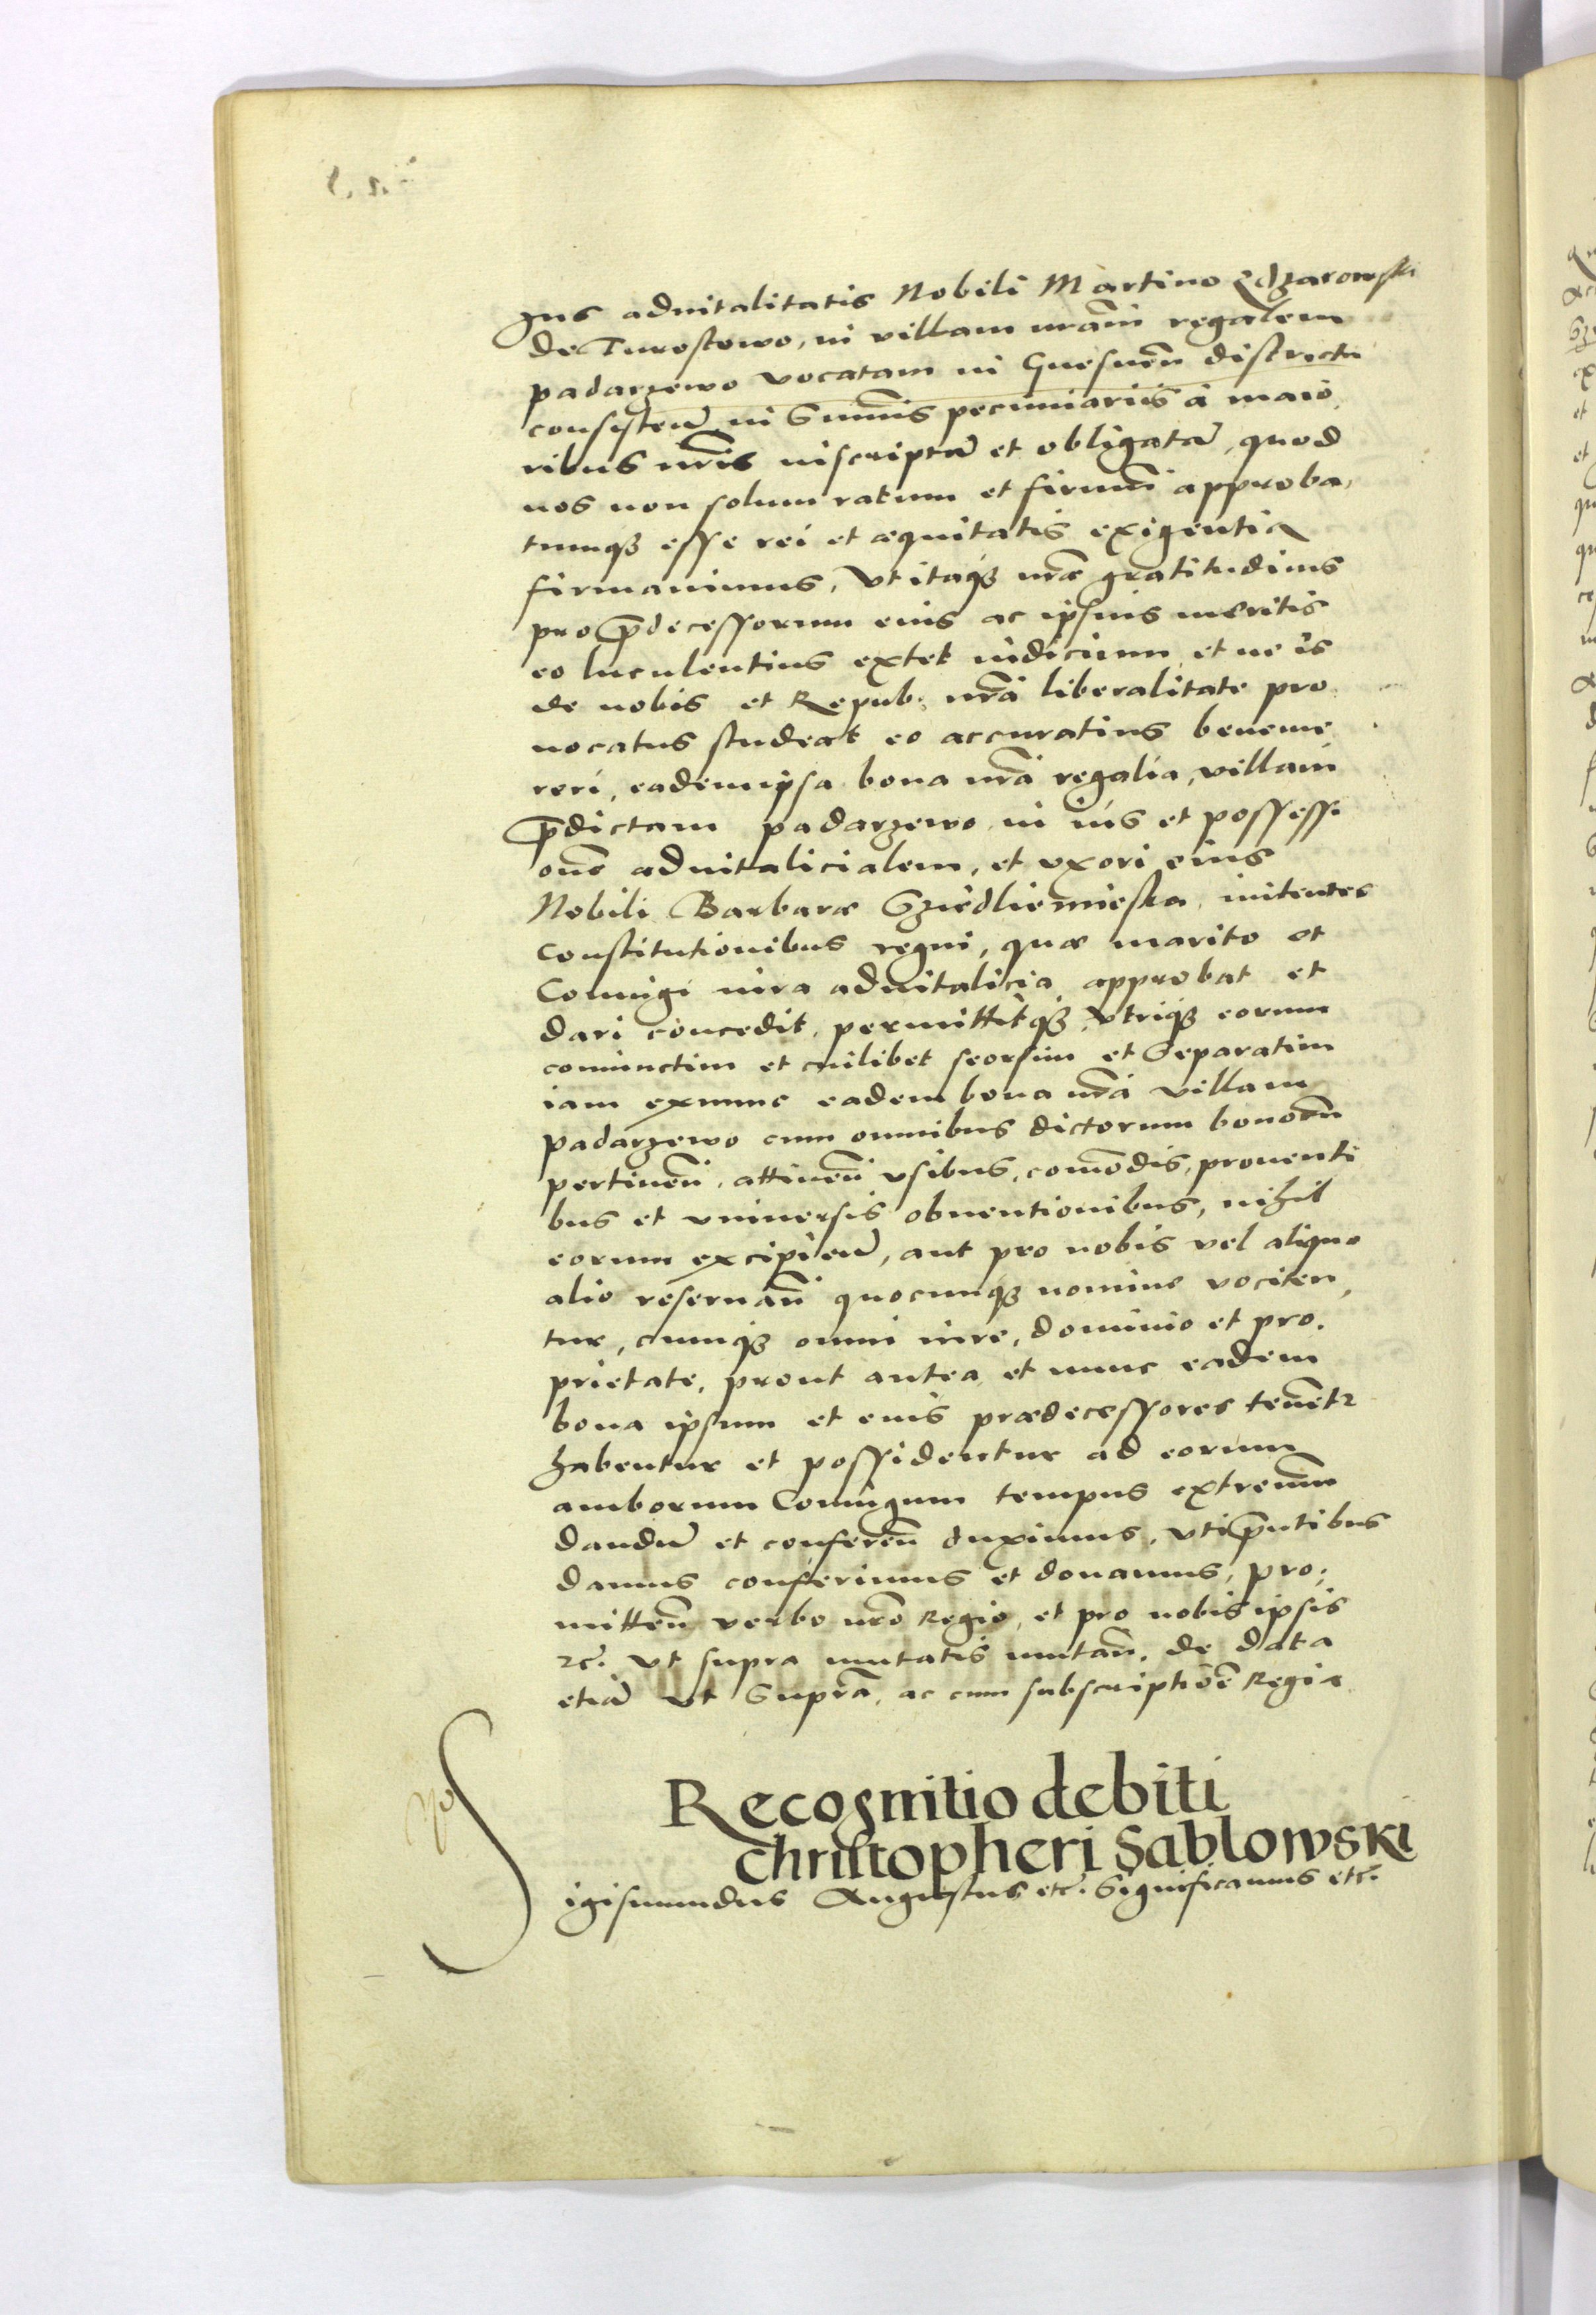 Jus aduitalitatis Nobili Martino Zdzarowski
de Turostowo, in villam nrãm regalem
padarzewo vocatam in Gnesneñ districtu
consisteñ in Summis pecuniariis à maio,
ribus nris inscriptã et obligatã, quod
nos non solum ratum et firmũ approba,
tumq3 esse rei et æquitatis exigentia
firmauimus, Vt itaq3 nræ gratitudinis
pro p̃decessorum eius ac ipsius meritis
eo luculentius extet indicium, et ne is
de nobis et Repub. nrã liberalitate pro
uocatus studeat eo accuratius beneme
reri, eadem ipsa bona nrã regalia, villam
p̃dictam padarzewo in ius et possessi
onẽ aduitalicialem, et vxori eius
Nobili Barbaræ Sziedliemieska, initentes
Constitutionibus regni, quæ marito et
Coniugi iura aduitalicia approbat et
dari concedit, permittitq3, Vtriq3 eorum
coniunctim et cuilibet seorsim et Separatim
iam exnunc eadem bona nrã villam
padarzewo cum omnibus dictorum bonorũ
pertineñ, attineñ vsibus, com̃odis, prouenti
bus et vniuersis obuentionibus, nihil
eorum excipieñ, aut pro nobis vel aliquo
alio reseruañ quocunq3 nomine vociten,
tur, cumq3 omni iure, dominio et pro.
prietate, prout antea et nunc eadem
bona ipsum et eius prædecessores tenẽt2
habentur et possidentur ad eorum
amborum Coniugum tempus extremũ
dandũ et confereñ duximus, vti p̃ntibus
damus conferimus et donamus, pro,
mitteñ verbo nrõ Regio, et pro nobis ipsis
etc̃. vt supra mutatis mutañ, de data
etiã vt Suprã, ac cum subscriptiõe Regia.
Recognitio debiti
Christopheri Sablowski
Sigismundus Augustus etc̃. Significamus etc̃.